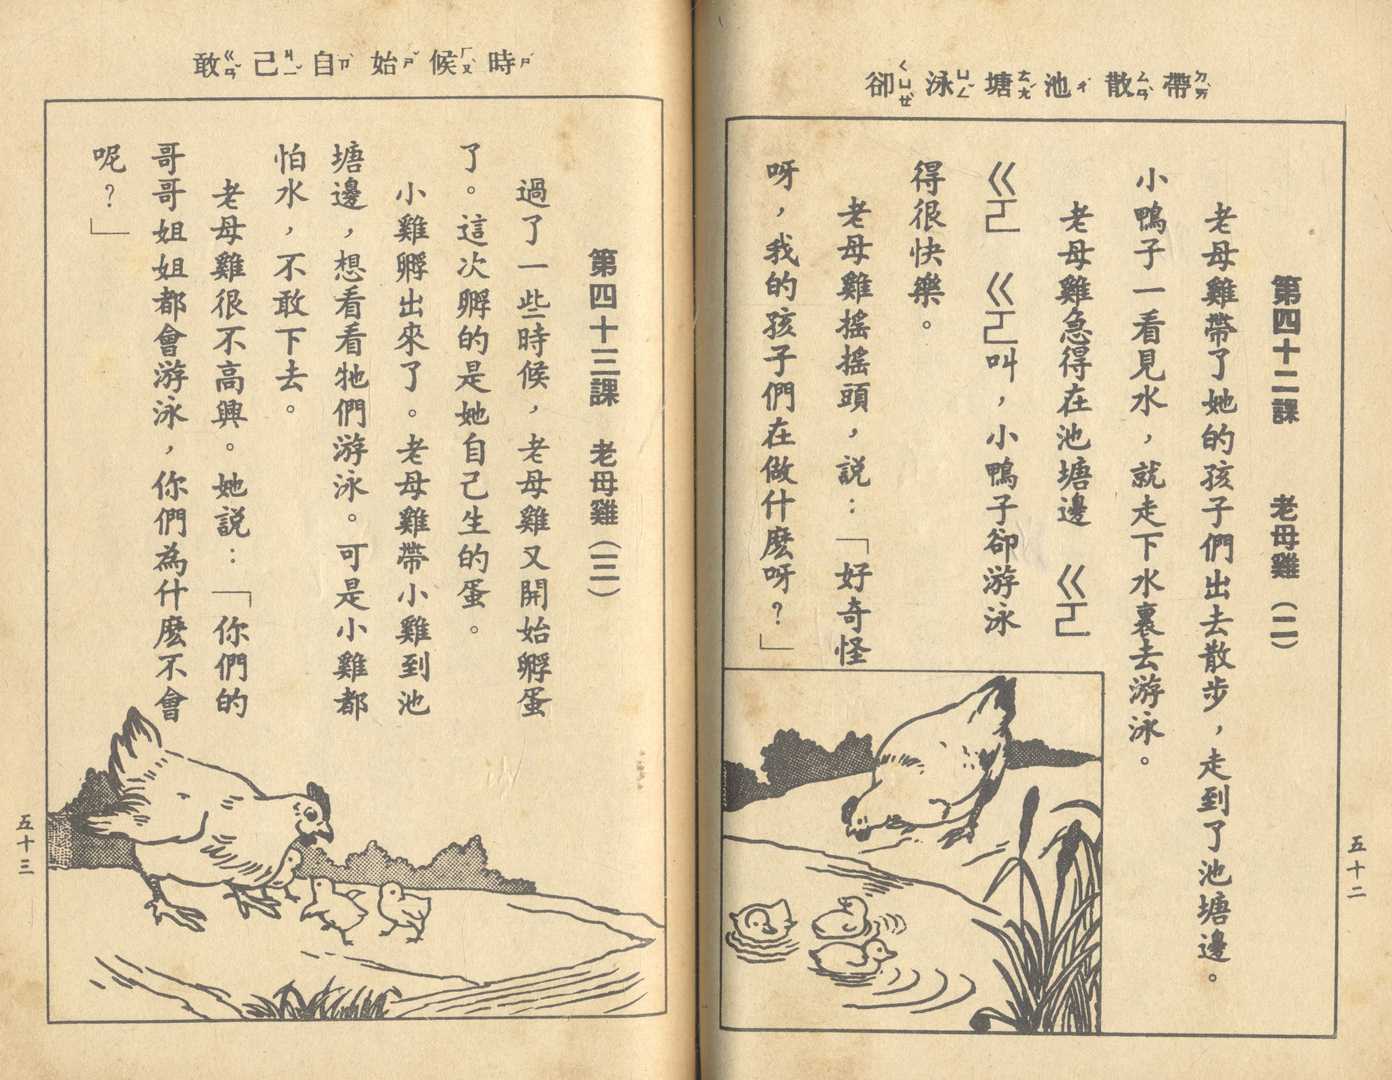 帶ㄉㄞˋ 散ㄙㄢˋ 池ㄔˊ 塘ㄊㄤˊ 泳ㄩㄥˇ 卻ㄑㄩㄝˋ
第四十二課 老母雞(二)
老母雞帶了她的孩子們出去散步,走到了池塘邊。
小鴨子一看見水,就走下水裏去游泳。
老母雞急得在池塘邊 ㄍㄛ
ㄍㄛ ㄍㄛ叫,小鴨子卻游泳
得很快樂。
老母雞搖搖頭,説:「好奇怪
呀,我的孩子們在做什麽呀?」
五十二
時ㄕˊ 候ㄏㄡˋ 始ㄕˇ 自ㄗˋ 己ㄐㄧˇ 敢ㄍㄢˇ
第四十三課 老母雞(三)
過了一些時候,老母雞又開始孵蛋
了。這次孵的是她自己生的蛋。
小雞孵出來了。老母雞帶小雞到池
塘邊,想看看牠們游泳。可是小雞都
怕水,不敢下去。
老母雞很不高興。她説:「你們的
哥哥姐姐都會游泳,你們為什麽不會
呢?」
五十三